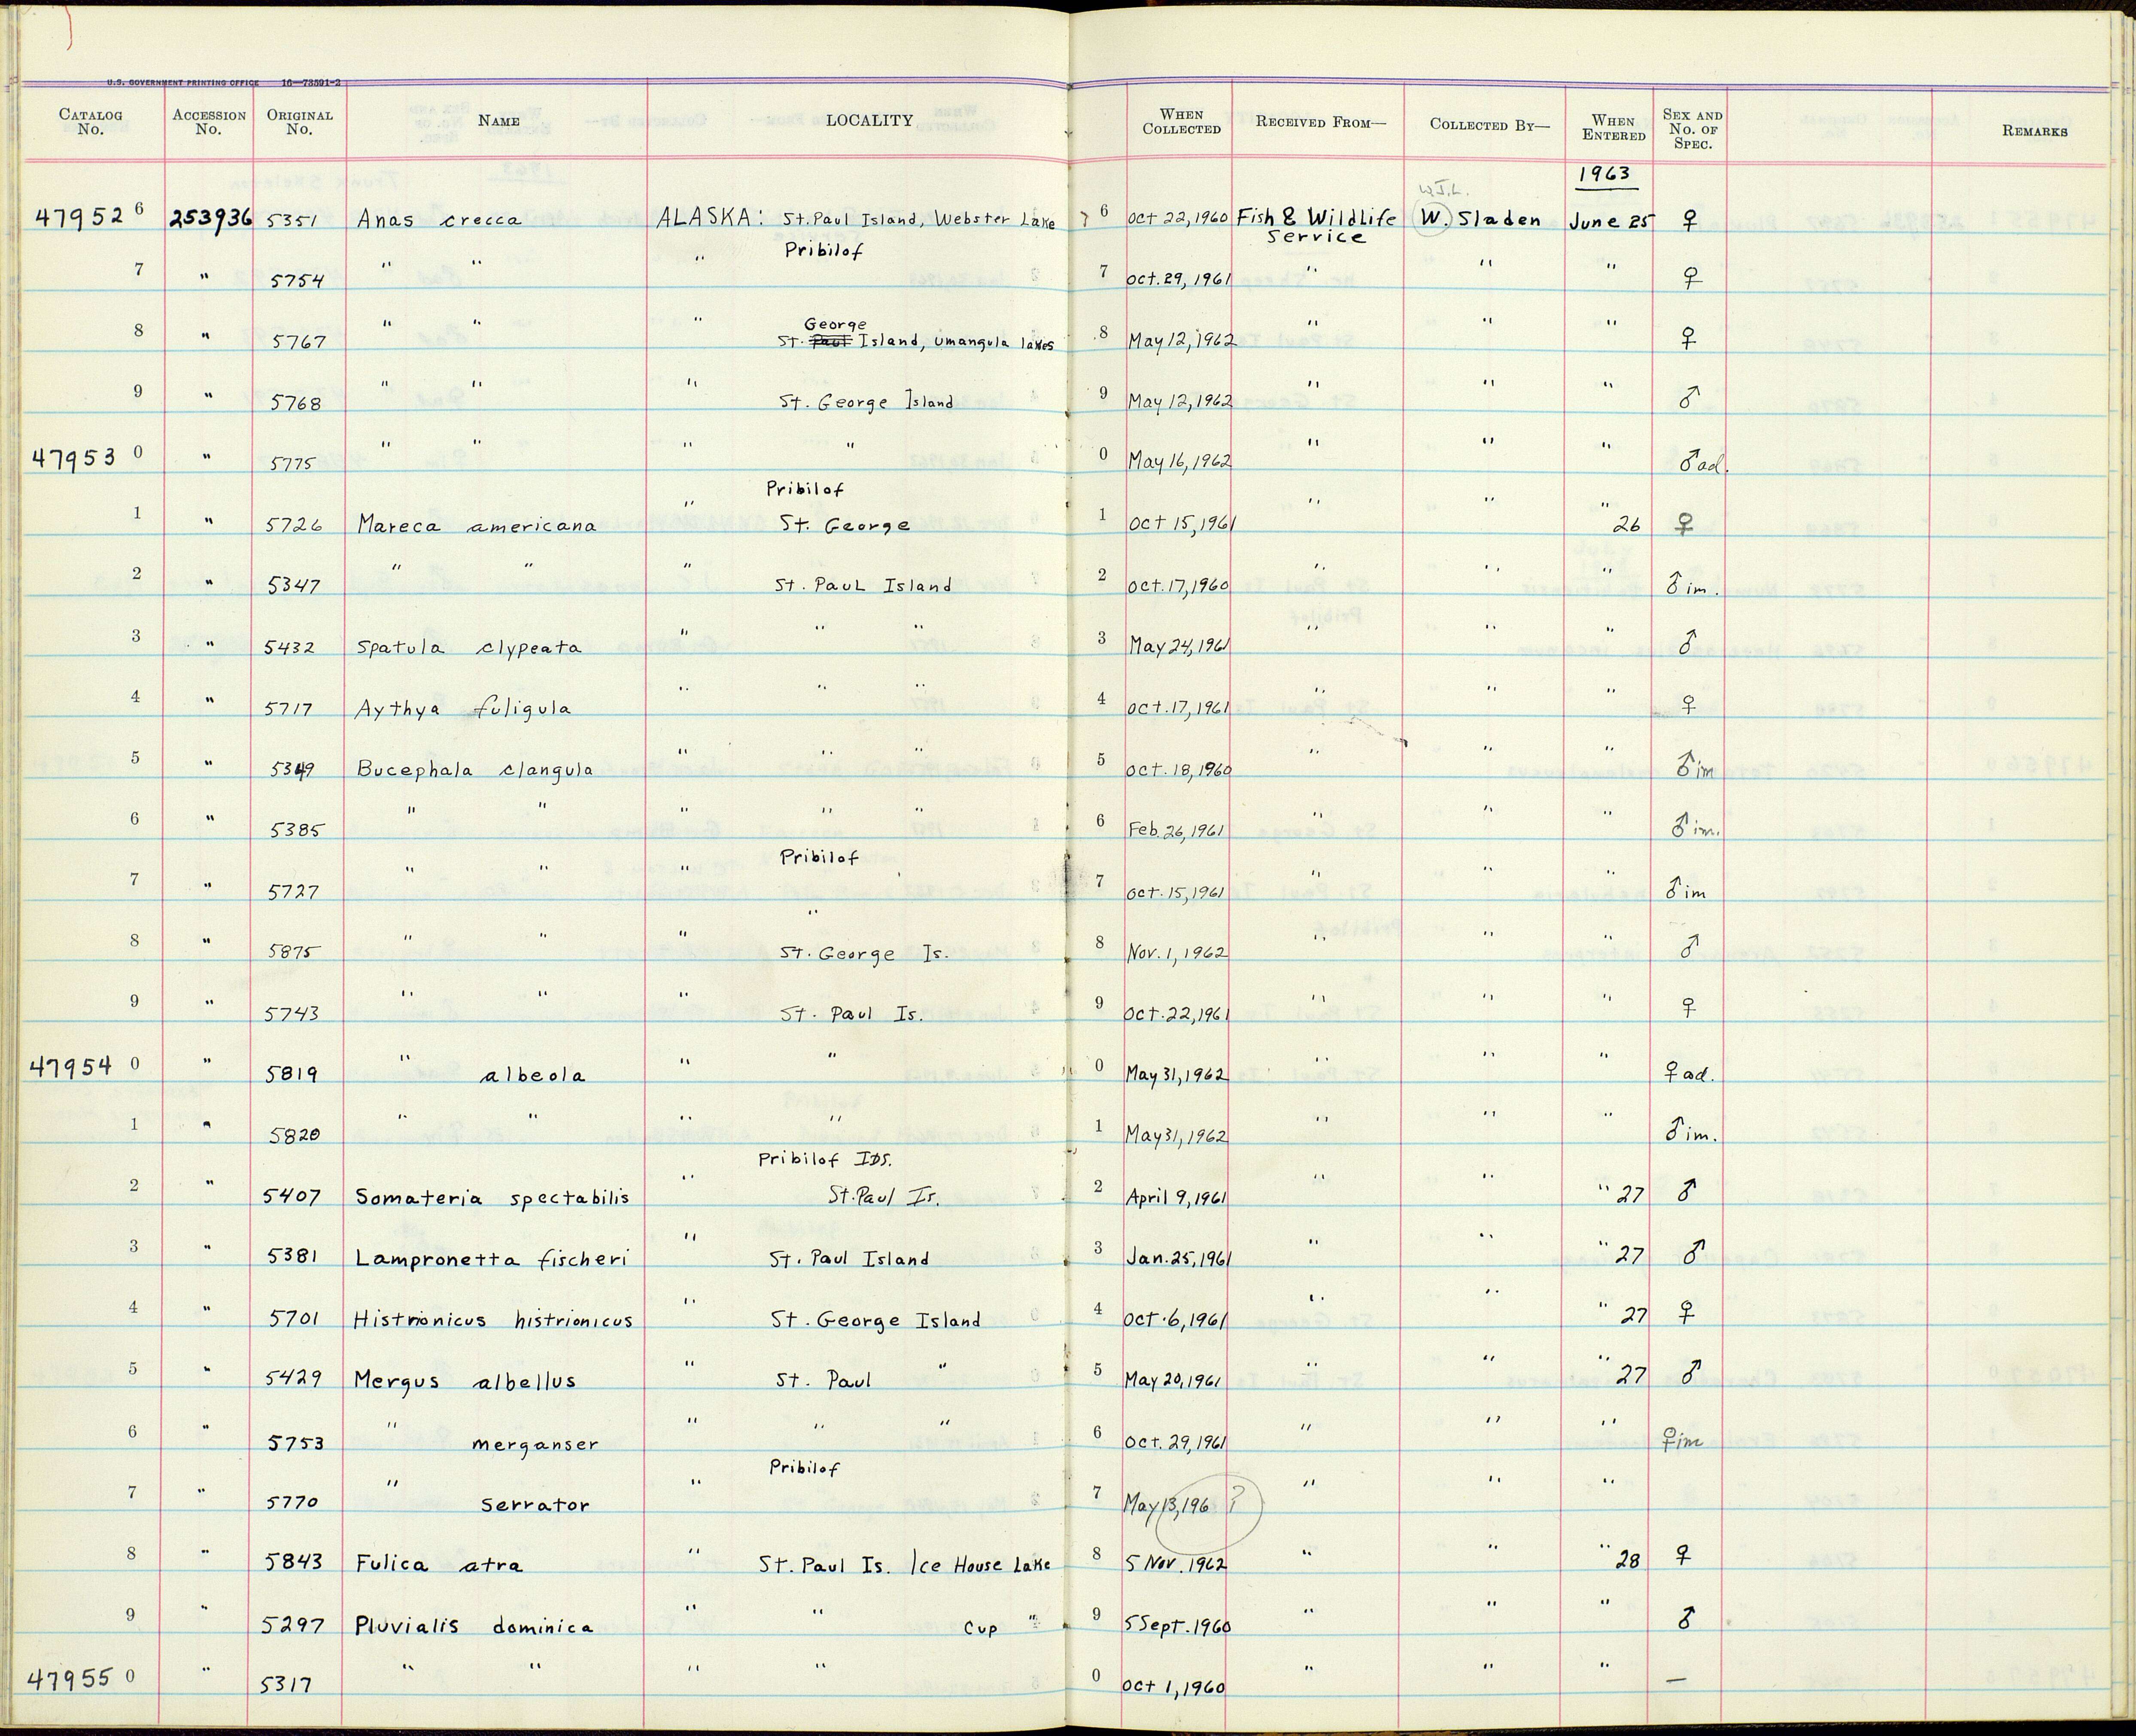 U.S. GOVERNMENT PRINTING OFFICE 16—73591-2
CATALOG No. ACCESSION No. ORIGINAL No. NAME LOCALITY WHEN COLLECTED RECEIVED FROM— COLLECTED BY— WHEN ENTERED SEX AND No. OF SPEC. REMARKS
1963
W.J.L.
47952 6 253936 5351 Anas crecca ALASKA: St. Paul Island, Webster Lake 6 Oct 22, 1960 Fish & Wildlife Service W. Sladen June 25 ♀
Pribilof
7 " 5754 " " " 7 Oct. 29, 1961 " " " ♀
George
8 " 5767 " " " St. Paul Island, Umangula lakes 8 May 12, 1962 " " " ♀
9 " 5768 " " " St. George Island 9 May 12, 1962 " " " ♂
47953 0 " 5775 " " " " 0 May 16, 1962 " " " ♂ ad.
Pribilof
1 " 5726 Mareca americana " St. George 1 Oct 15, 1961 " " " 26 ♀
2 " 5347 " " " St. Paul Island 2 Oct. 17, 1960 " " " ♂ im.
3 " 5432 Spatula clypeata " " " 3 May 24, 1961 " " " ♂
4 " 5717 Aythya fuligula " " " 4 Oct. 17, 1961 " " " ♀
5 " 5349 Bucephala clangula " " " 5 Oct. 18, 1960 " " " ♂ im
6 " 5385 " " " " " 6 Feb. 26, 1961 " " " ♂ im.
Pribilof
7 " 5727 " " " 7 Oct. 15, 1961 " " " ♂ im
"
8 " 5875 " " " St. George Is. 8 Nov. 1, 1962 " " " ♂
9 " 5743 " " " St. Paul Is. 9 Oct. 22, 1961 " " " ♀
47954 0 " 5819 " albeola " " 0 May 31, 1962 " " " ♀ ad.
1 " 5820 " " " " 1 May 31, 1962 " " " ♂ im.
Pribilof IDS.
2 " 5407 Somateria spectabilis " St. Paul Is. 2 April 9, 1961 " " " 27 ♂
3 " 5381 Lampronetta fischeri " St. Paul Island 3 Jan. 25, 1961 " " " 27 ♂
4 " 5701 Histrionicus histrionicus " St. George Island 4 Oct. 6, 1961 " " " 27 ♀
5 " 5429 Mergus albellus " St. Paul " 5 May 20, 1961 " " " 27 ♂
6 " 5753 " merganser " " " 6 Oct. 29, 1961 " " " ♀ im
Pribilof
7 " 5770 " serrator " 7 May 13, 196 ? " " "
8 " 5843 Fulica atra " St. Paul Is. Ice House Lake 8 5 Nov. 1962 " " " 28 ♀
9 " 5297 Pluvialis dominica " " Cup " 9 5 Sept. 1960 " " " ♂
47955 0 " 5317 " " " " 0 Oct 1, 1960 " " " —